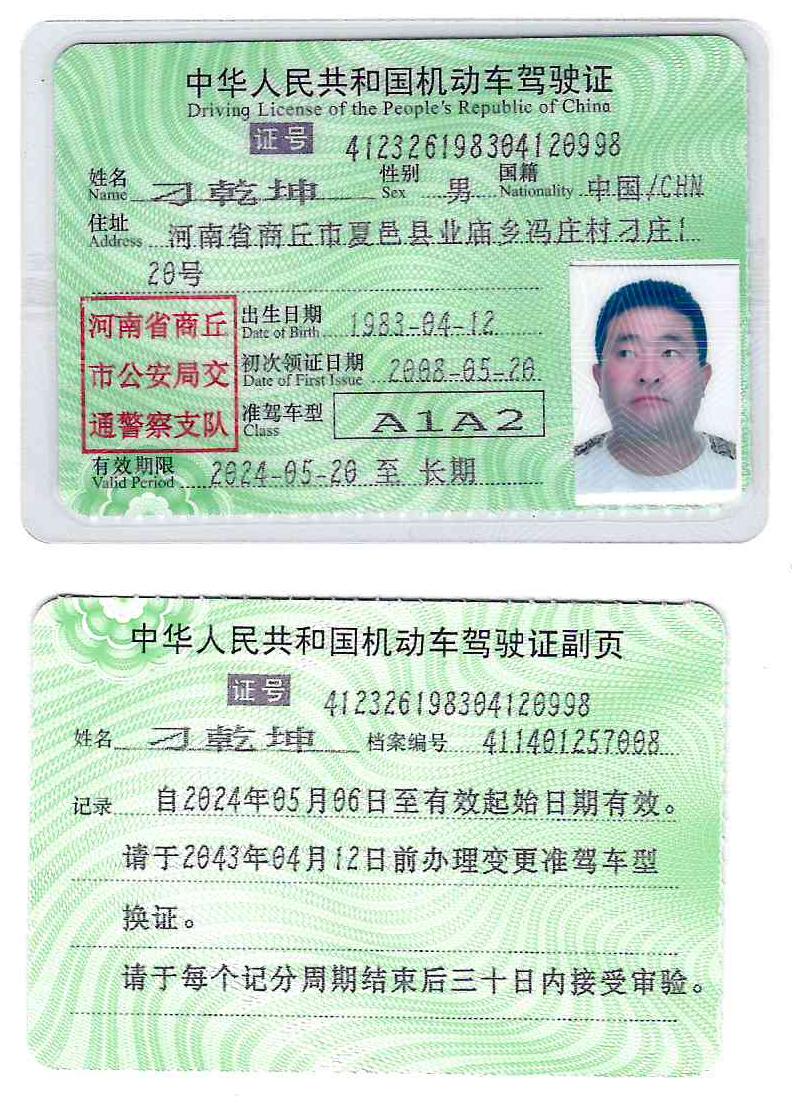 中华人民共和国机动车驾驶证
Driving License of the People's Republic of China
证号 412326198304120998
姓名 Name 刁乾坤 性别 Sex 男 国籍 Nationality 中国/CHN
住址 Address 河南省商丘市夏邑县业庙乡冯庄村刁庄1
20号
河南省商丘
市公安局交
通警察支队
出生日期 Date of Birth 1983-04-12
初次领证日期 Date of First Issue 2008-05-20
准驾车型 Class A1A2
有效期限 Valid Period 2024-05-20 至 长期
中华人民共和国机动车驾驶证副页
证号 412326198304120998
姓名 刁乾坤 档案编号 411401257008
记录 自2024年05月06日至有效起始日期有效。
请于2043年04月12日前办理变更准驾车型
换证。
请于每个记分周期结束后三十日内接受审验。